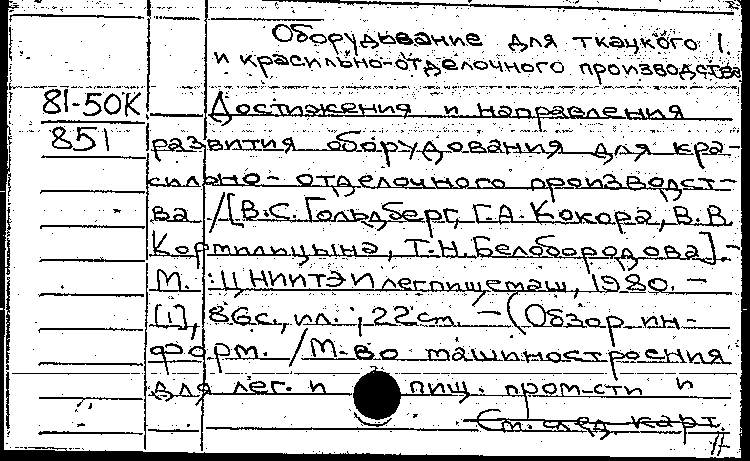 Оборудывание для ткацкого 1.
и красильно-отделочного производства
81-50К
851
Достижения и направления
развития оборудования для кра-
сильно-отделочного производст-
ва /[В.С. Гольдберг, Г.А. Кокора, В.В.
Кортилицына, Т.Н. Белобородова].-
М. : ЦНИИТЭИлегпищемаш, 1980. -
[1], 86с., ил. ; 22 см. - (Обзор. ин-
форм. / М-во машиностроения
для лег. и пищ. пром-сти и
См. след. карт.